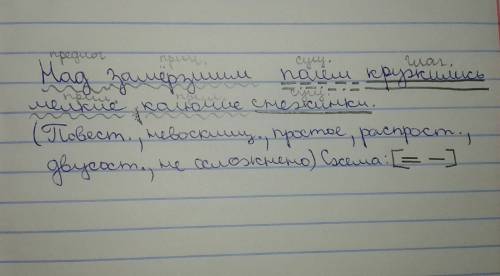 предлог прич. сущ. глаг.
Над замёрзшим полем кружились
прил. сущ.
мелкие, колючие снежинки.
(Повест., невосклиц., простое, распрост.,
двусост., не осложнено) Схема: [= –]